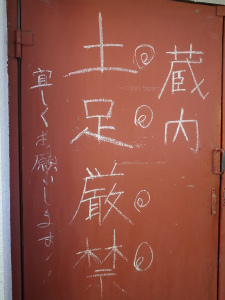 蔵内
土足厳禁
宜しくお願いします!!